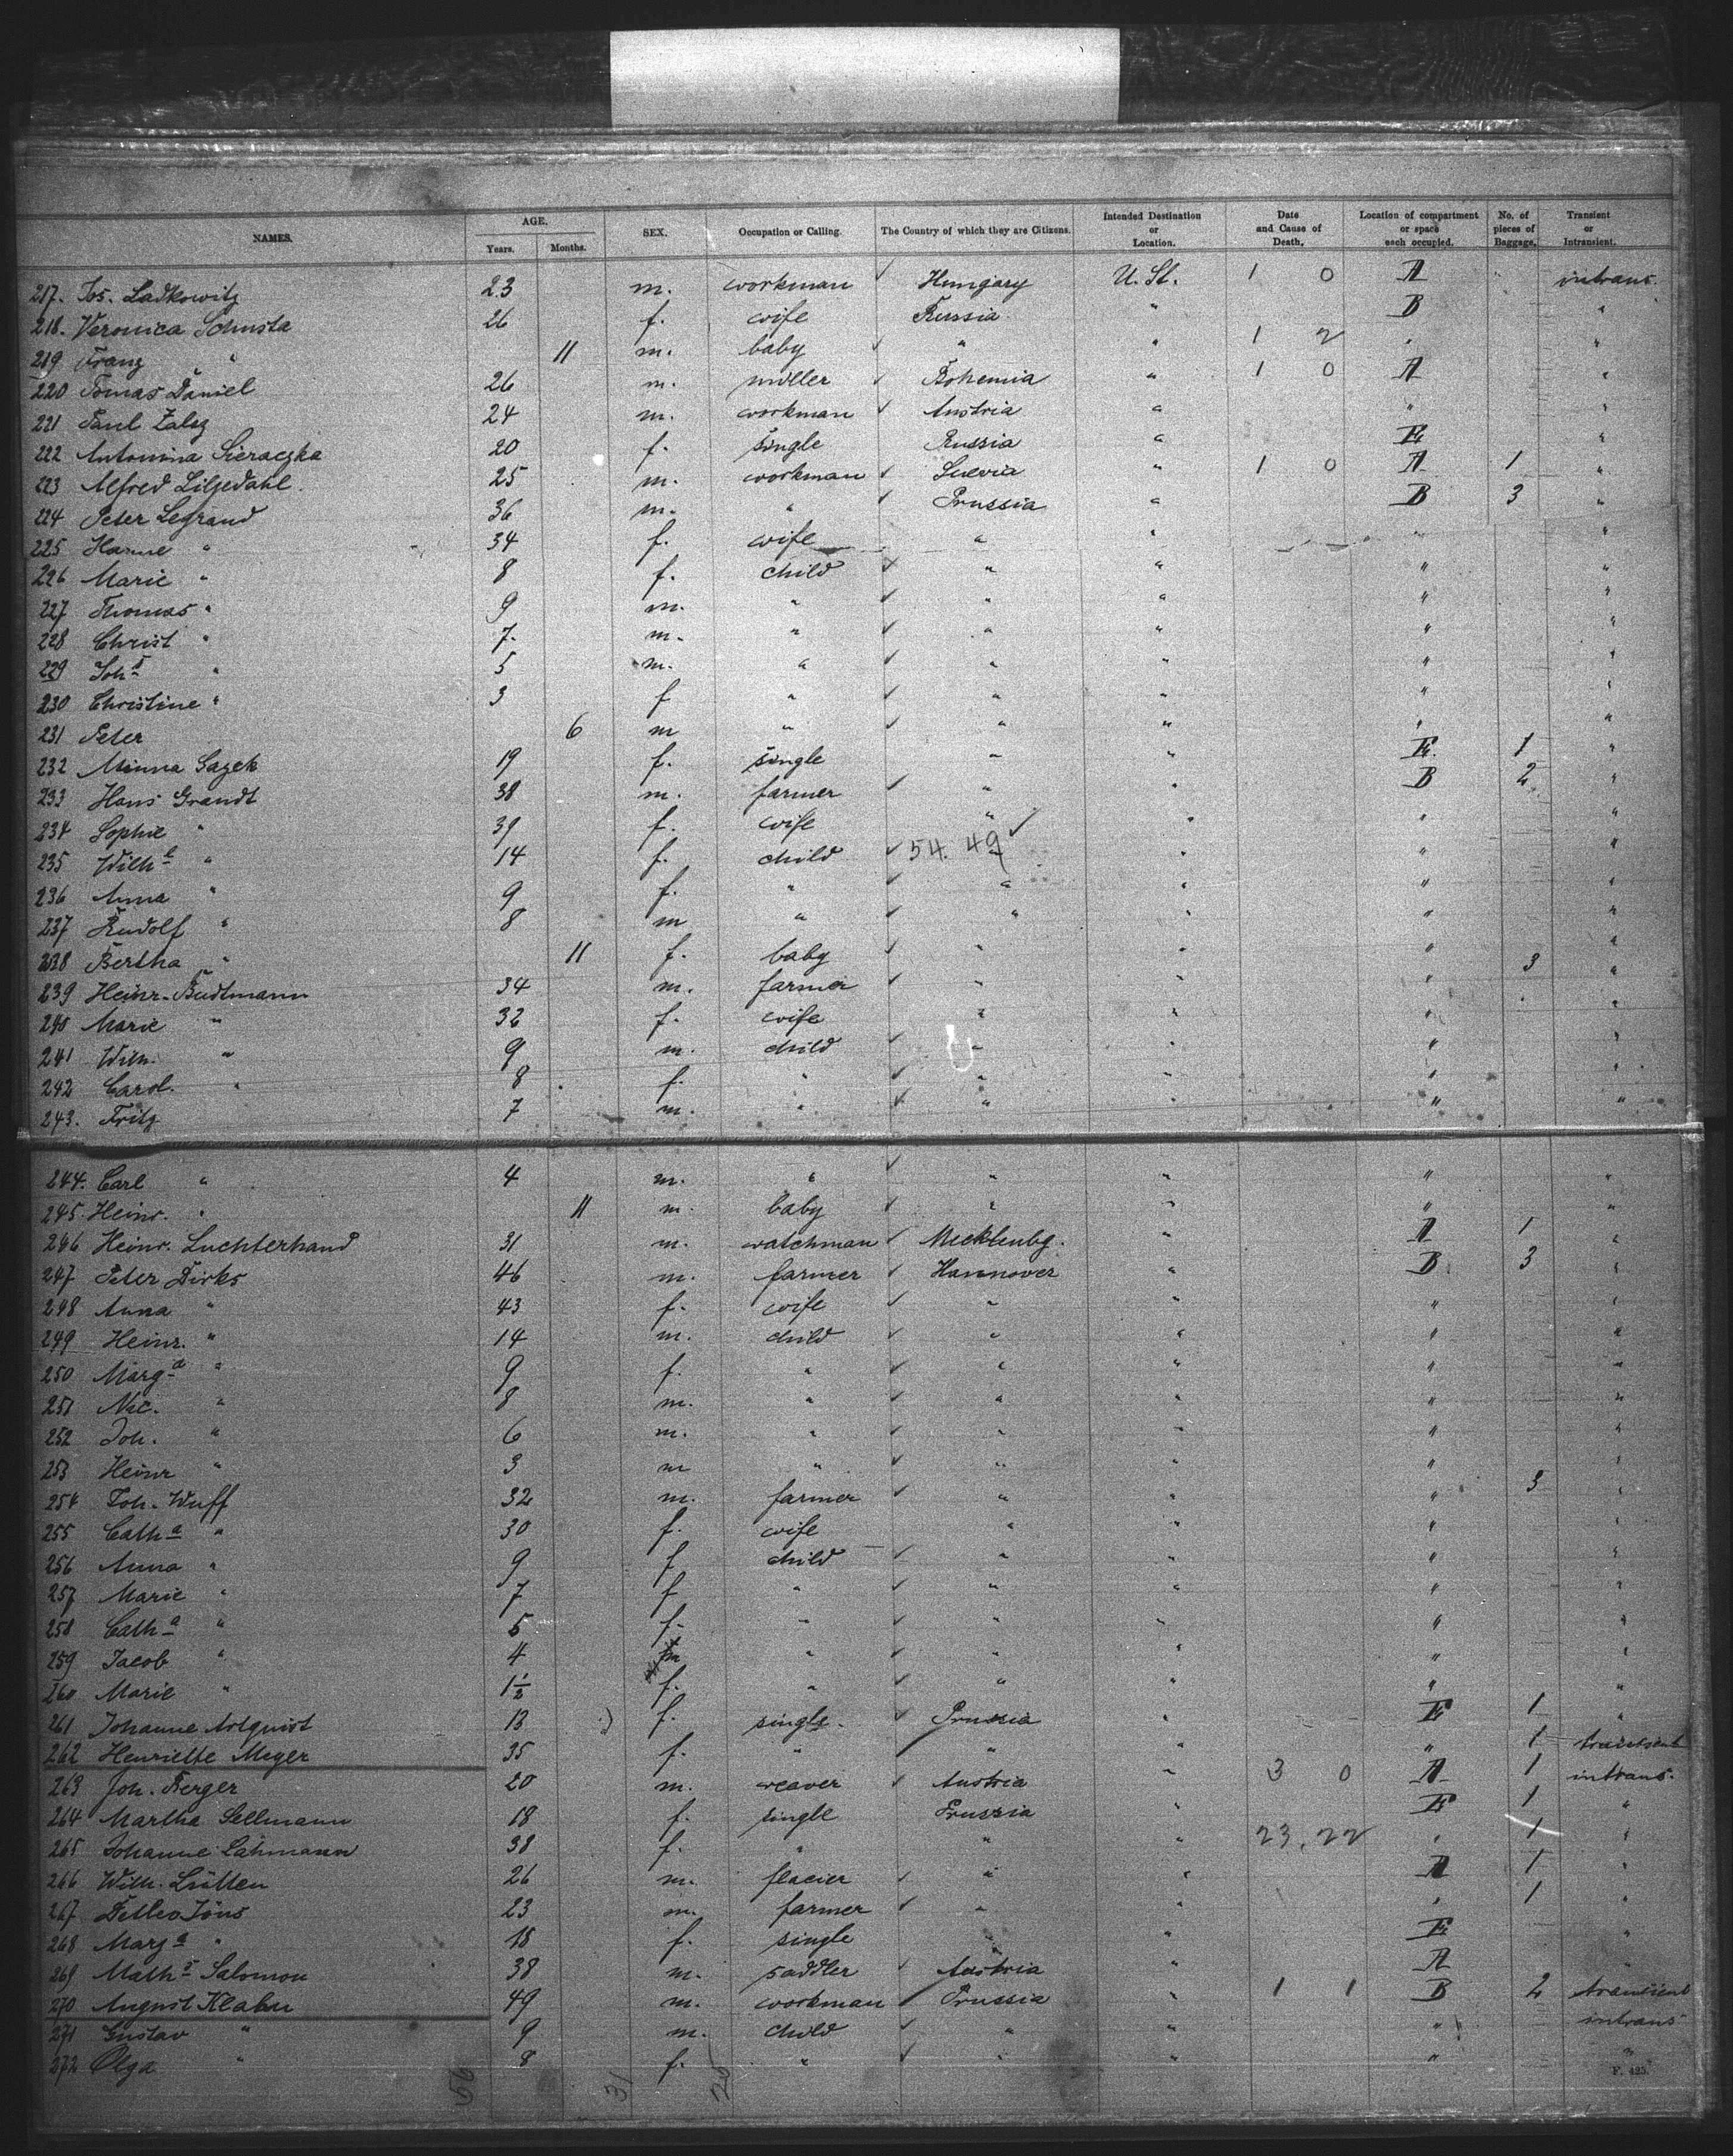 NAMES. AGE. Years. Months. SEX. Occupation or Calling. The Country of which they are Citizens. Intended Destination or Location. Date and Cause of Death. Location of compartment or space each occupied. No. of pieces of Baggage. Transient or Intransient.
217. Jos. Ladkowitz 23 m. workman ✓ Hungary U. St. 1 0 A intrans.
218. Veronica Schusta 26 f. wife Russia " B "
219 Franz " 11 m. baby ✓ " " 1 2 " "
220 Tomas Daniel 26 m. miller ✓ Bohemia " 1 0 A "
221 Paul Zalez 24 m. workman ✓ Austria " " "
222 Antonina Sieraczka 20 f. single Russia " E "
223 Alfred Liljedahl. 25 m. workman ✓ Suevia " 1 0 A 1 "
224 Peter Legrand 36 m. " ✓ Prussia " B 3 "
225 Hanne " 34 f. wife " " " "
226 Marie " 8 f. child ✓ " " " "
227 Thomas " 9 m. " ✓ " " " "
228 Christ " 7. m. " ✓ " " " "
229 Johs " 5 m. " ✓ " " " "
230 Christine " 3 f " ✓ " " " "
231 Peter 6 m " ✓ " " " "
232 Minna Gazek 19 f. single " " E. 1 "
233 Hans Grandt 38 m. farmer ✓ " " B 2 "
234 Sophie " 39 f. wife " " " "
235 Wilhe " 14 f. child ✓ 54. 49 ✓ " " "
236 Anna " 9 f. " ✓ " " " "
237 Rudolf " 8 m " ✓ " " " "
238 Bertha " 11 f. baby ✓ " " " "
239 Heinr. Büdtmann 34 m. farmer ✓ " " " 3 "
240 Marie " 32 f. wife " " " "
241 Wilh. " 9 m. child ✓ " " " "
242 Carol. " 8 f. " ✓ " " " "
243. Fritz 7 m. " ✓ " " " "
244. Carl " 4 m. " ✓ " " " "
245. Heinr. " 11 m. baby ✓ " " " "
246 Heinr. Luchterhand 31 m. watchman ✓ Mecklenbg. " A 1 "
247 Peter Dirks 46 m. farmer ✓ Hannover " B 3 "
248 Anna " 43 f. wife ✓ " " " "
249 Heinr. " 14 m. child ✓ " " " "
250 Marga " 9 f. " ✓ " " " "
251 Nic. " 8 m. " ✓ " " " "
252 Joh. " 6 m. " ✓ " " " "
253 Heinr " 3 m " ✓ " " " "
254 Joh. Wuff 32 m. farmer ✓ " " " 3 "
255 Catha " 30 f. wife " " " "
256 Anna " 9 f child ✓ " " " "
257 Marie " 7 f " ✓ " " " "
258 Catha " 5 f. " ✓ " " " "
259 Jacob " 4 m " ✓ " " " "
260 Marie " 1½ f. " ✓ " " " "
261 Johanne Artquist 13 f. single. ✓ Prussia " E 1 "
262 Henriette Meyer 35 f. " " " " 1 transient
263 Joh. Berger 20 m. weaver ✓ Austria " 3 0 A 1 intrans.
264 Martha Sellmann 18 f. single Prussia " E 1 "
265 Johanne Lahmann 38 f. " " " 23, 22 " 1 "
266 Wilh. Lütten 26 m. flacier ✓ " " A 1 "
267 Detlev Jöns 23 m. farmer ✓ " " " 1 "
268 Marga " 18 f. single " " E "
269 Maths Salomon 38 m. saddler ✓ Austria " A "
270 August Klabu 49 m. workman ✓ Prussia " 1 1 B 2 transient
271 Gustav " 9 m. child ✓ " " " intrans
272 Olga " 8 f. " ✓ " " " "
F. 425.
56 31 25